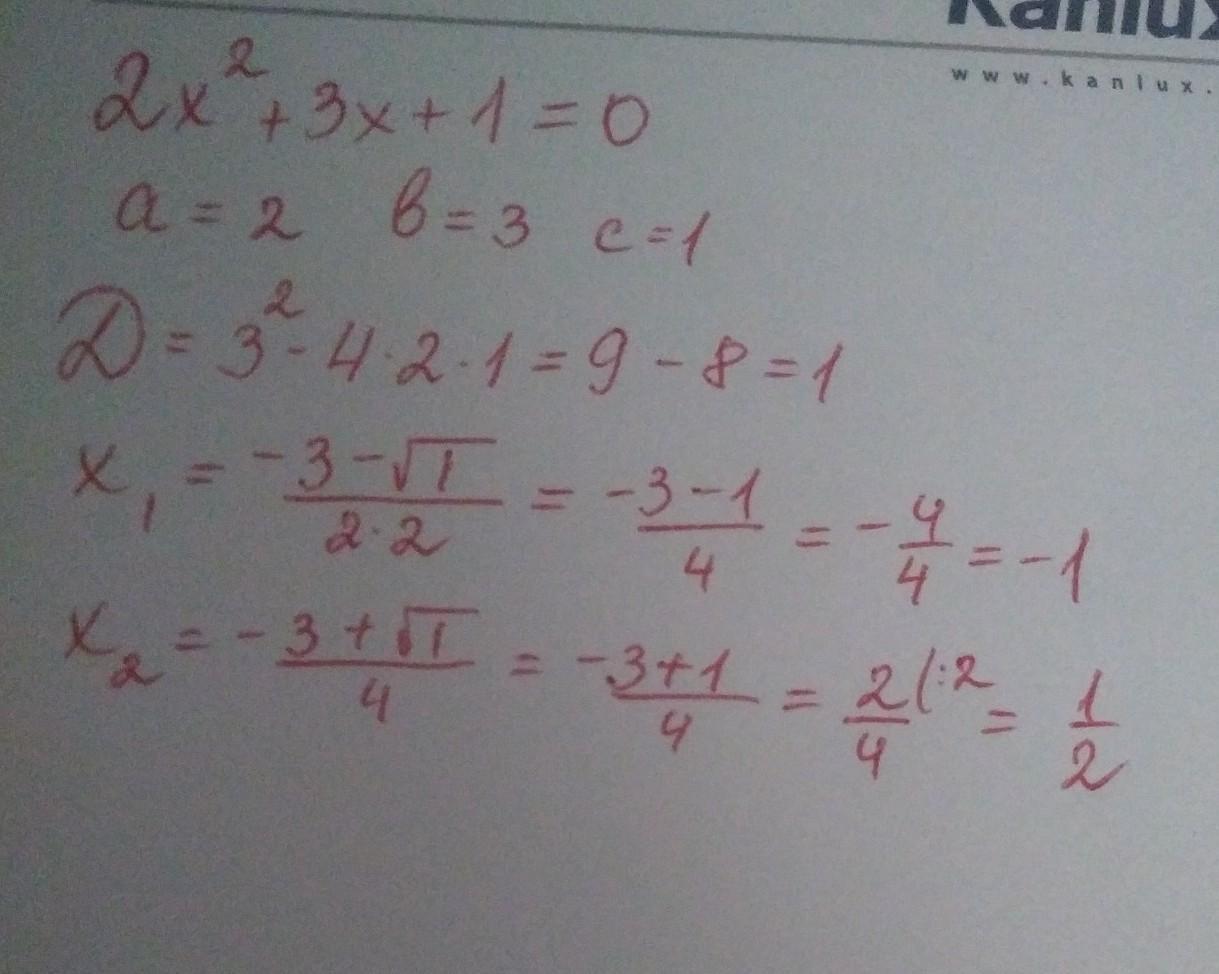 Kanlux
www.kanlux.
2x² + 3x + 1 = 0
a = 2 b = 3 c = 1
D = 3² - 4·2·1 = 9 - 8 = 1
x₁ = (-3 - √1)/(2·2) = (-3 - 1)/4 = -4/4 = -1
x₂ = (-3 + √1)/4 = (-3 + 1)/4 = 2/4 (:2 = 1/2